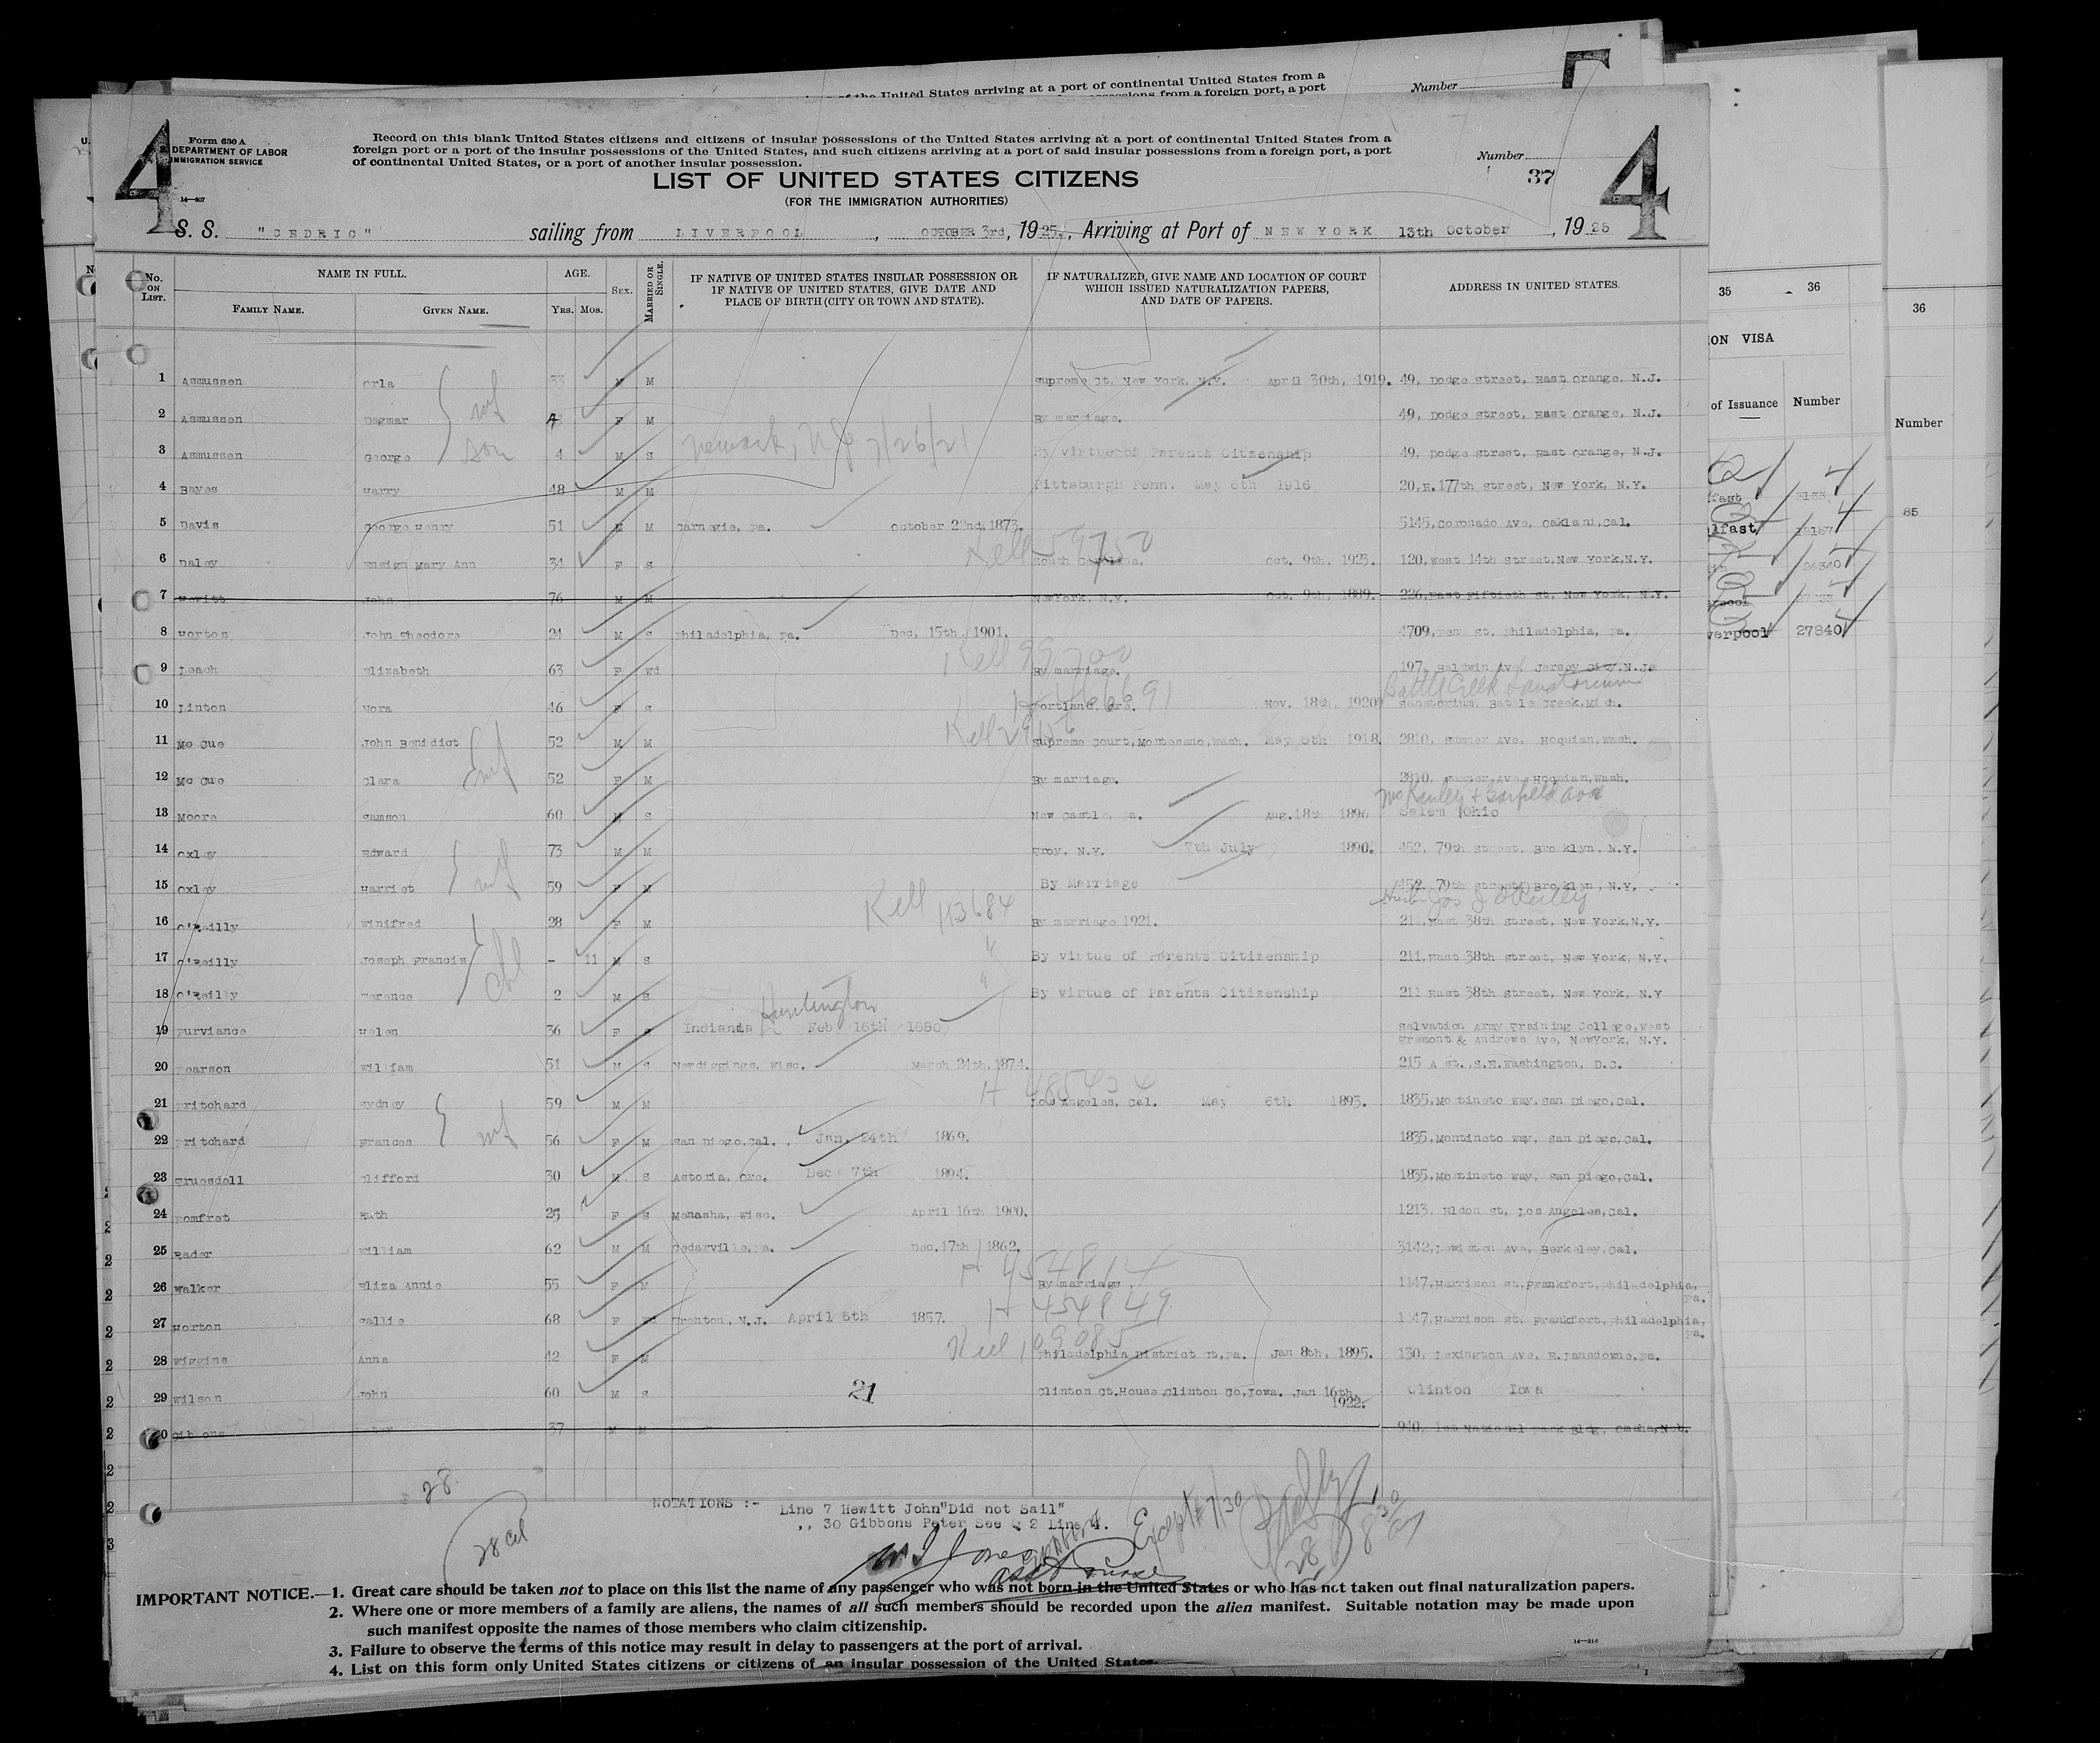 of the United States arriving at a port of continental United States from a
from a foreign port, a port
Number
4 Form 630 A
DEPARTMENT OF LABOR
IMMIGRATION SERVICE
14—607
Record on this blank United States citizens and citizens of insular possessions of the United States arriving at a port of continental United States from a
foreign port or a port of the insular possessions of the United States, and such citizens arriving at a port of said insular possessions from a foreign port, a port
of continental United States, or a port of another insular possession.
Number
37
4
LIST OF UNITED STATES CITIZENS
(FOR THE IMMIGRATION AUTHORITIES)
S. S. "CEDRIC" sailing from LIVERPOOL, OCTOBER 3rd, 1925., Arriving at Port of NEW YORK 13th October, 1925
No. ON LIST. NAME IN FULL. AGE. SEX. MARRIED OR SINGLE. IF NATIVE OF UNITED STATES INSULAR POSSESSION OR IF NATIVE OF UNITED STATES, GIVE DATE AND PLACE OF BIRTH (CITY OR TOWN AND STATE). IF NATURALIZED, GIVE NAME AND LOCATION OF COURT WHICH ISSUED NATURALIZATION PAPERS, AND DATE OF PAPERS. ADDRESS IN UNITED STATES.
FAMILY NAME. GIVEN NAME. YRS. MOS.
1 Asmussen Orla 33 M M Supreme Ct. New York, N.Y. April 30th, 1919. 49, Dodge Street, East Orange, N.J.
2 Asmussen Dagmar wf F M By marriage. 49, Dodge Street, East Orange, N.J.
3 Asmussen George son 4 M S Newark, NJ 7/26/21 By virtue of Parents Citzenship 49, Dodge Street, East Orange, N.J.
4 Bayes Harry 48 M M Pittsburgh Penn. May 8th 1916 20,E.177th Street, New York, N.Y.
5 Davis George Henry 51 M M Carnegie, Pa. October 22nd,1873. 5145,Coronado Ave, Oakland,Cal.
6 Daley Ensign Mary Ann 34 F S South Carolina, Oct. 9th, 1923. 120,West 14th Street,New York,N.Y.
7 Hewitt John 76 M M New York, N.Y. Oct. 9th, 1889. 226,East Fiftieth St, New York, N.Y.
8 Horton John Theodore 24 M S Philadelphia, Pa. Dec. 15th, 1901. 4709,Penn St. Philadelphia, Pa.
9 Leach Elizabeth 63 F Wd By marriage. 197, Baldwin Av. Jersey City,N.J.
Battle Creek Sanatorium
10 Linton Nora 46 F S Portland, Ore. Nov. 18th, 1920 Sanatorium, Battle Creek,Mich.
11 Mc Cue John Benidict 52 M M Supreme Court,Montesano,Wash. May 6th 1918. 2810, Sumner Ave, Hoquian,Wash.
12 Mc Cue Clara wf 52 F M By marriage. 2810, Sumner Ave, Hoquian,Wash.
McKinley & Garfield Ave
13 Moore Samson 60 M S New Castle, Pa. Aug.18th 1896 Salem Ohio
14 Oxley Edward 73 M M Troy, N.Y. 7th July 1890. 452, 79th Street, Brooklyn, N.Y.
15 Oxley Harriet wf 59 F M By Marriage 452, 79th Street, Brooklyn, N.Y.
Kell 113684 Jos J O'Reilly
16 O'Reilly Winifred 28 F M By marriage 1921. 211,East 38th Street, New York,N.Y.
17 O'Reilly Joseph Francis - 11 M S By virtue of Parents Citizenship 211,East 38th Street, New York, N.Y.
18 O'Reilly Terence 2 M S By virtue of Parents Citizenship 211 East 38th Street, New York, N.Y
Huntington
19 Purviance Helen 36 F S Indiana Feb 16th Salvation Army Training College,West
Tremont & Andrews Ave, NewYork, N.Y.
20 Pearson William 51 M S Newdiggings, Wisc. March 24th,1874. 215 A St. S.E.Washington, D.C.
21 Pritchard Sydney 59 M M Los Angeles, Cal. May 6th 1893. 1835,Montineto Way,San Diego,Cal.
22 Pritchard Frances wf 56 F M San Diego,Cal. Jan. 24th 1869. 1835,Montineto Way, San Diego,Cal.
23 Truesdell Clifford 30 M S Astoria, Ore. Dec 7th 1894. 1835,Montineto Way, San Diego,Cal.
24 Pomfret Ruth 25 F S Menasha, Wisc. April 16th 1900. 1213, Eldon St, Los Angeles,Cal.
25 Rader William 62 M M Cedarville,Pa. Dec.17th 1862. 3142,Lewiston Ave, Berkeley,Cal.
26 Walker Eliza Annie 55 F By marriage. 1147,Harrison St,Frankfort,Philadelphia,
Pa.
27 Horton Sallie 68 F Trenton, N.J. April 8th 1857. H 454849 1147,Harrison St, Frankfort,Philadelphia,
Pa.
28 Wiggins Anna 42 F M Philadelphia District Ct,Pa. Jan 8th, 1895. 130, Lexington Ave, E.Lansdowne,Pa.
29 Wilson John 60 M S 21 Clinton Ct.House,Clinton Co,Iowa. Jan 16th, 1922. Clinton Iowa
30 Gibbons Peter 37 M M
28
NOTATIONS :- Line 7 Hewitt John"Did not Sail"
,, 30 Gibbons Peter See 2 Line 4.
Except # 7/30
28
IMPORTANT NOTICE.—1. Great care should be taken not to place on this list the name of any passenger who was not born in the United States or who has not taken out final naturalization papers.
2. Where one or more members of a family are aliens, the names of all such members should be recorded upon the alien manifest. Suitable notation may be made upon
such manifest opposite the names of those members who claim citizenship.
3. Failure to observe the terms of this notice may result in delay to passengers at the port of arrival.
4. List on this form only United States citizens or citizens of an insular possession of the United States.
35 36
ON VISA
of Issuance Number
verpool 27840
36
Number
85